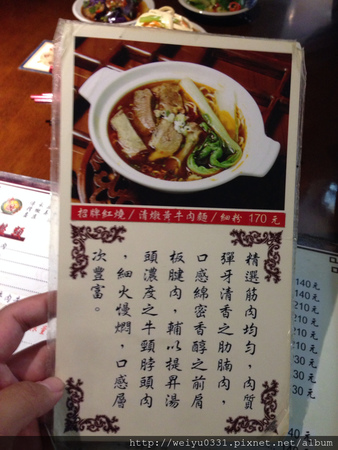 招牌紅燒/清燉黃牛肉麵/細粉 170元
精選筋肉均勻，肉質
彈牙清香之肋腩肉，
口感綿密香醇之前肩
板腱肉，輔以提昇湯
頭濃度之牛頸脖頭肉
，細火慢燜，口感層
次豐富。
140元
210元
140元
210元
30元
30元
40元
30元
http://weiyu0331.pixnet.net/album